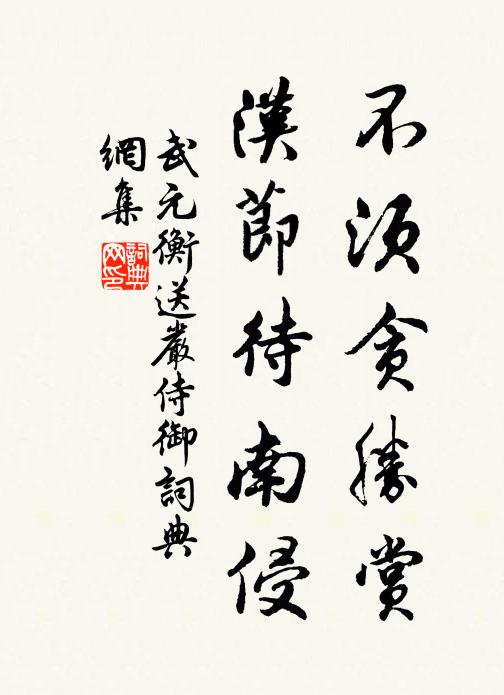 不須貪勝賞
漢節待南侵
武元衡送嚴侍御詞典
網集
詞典網印